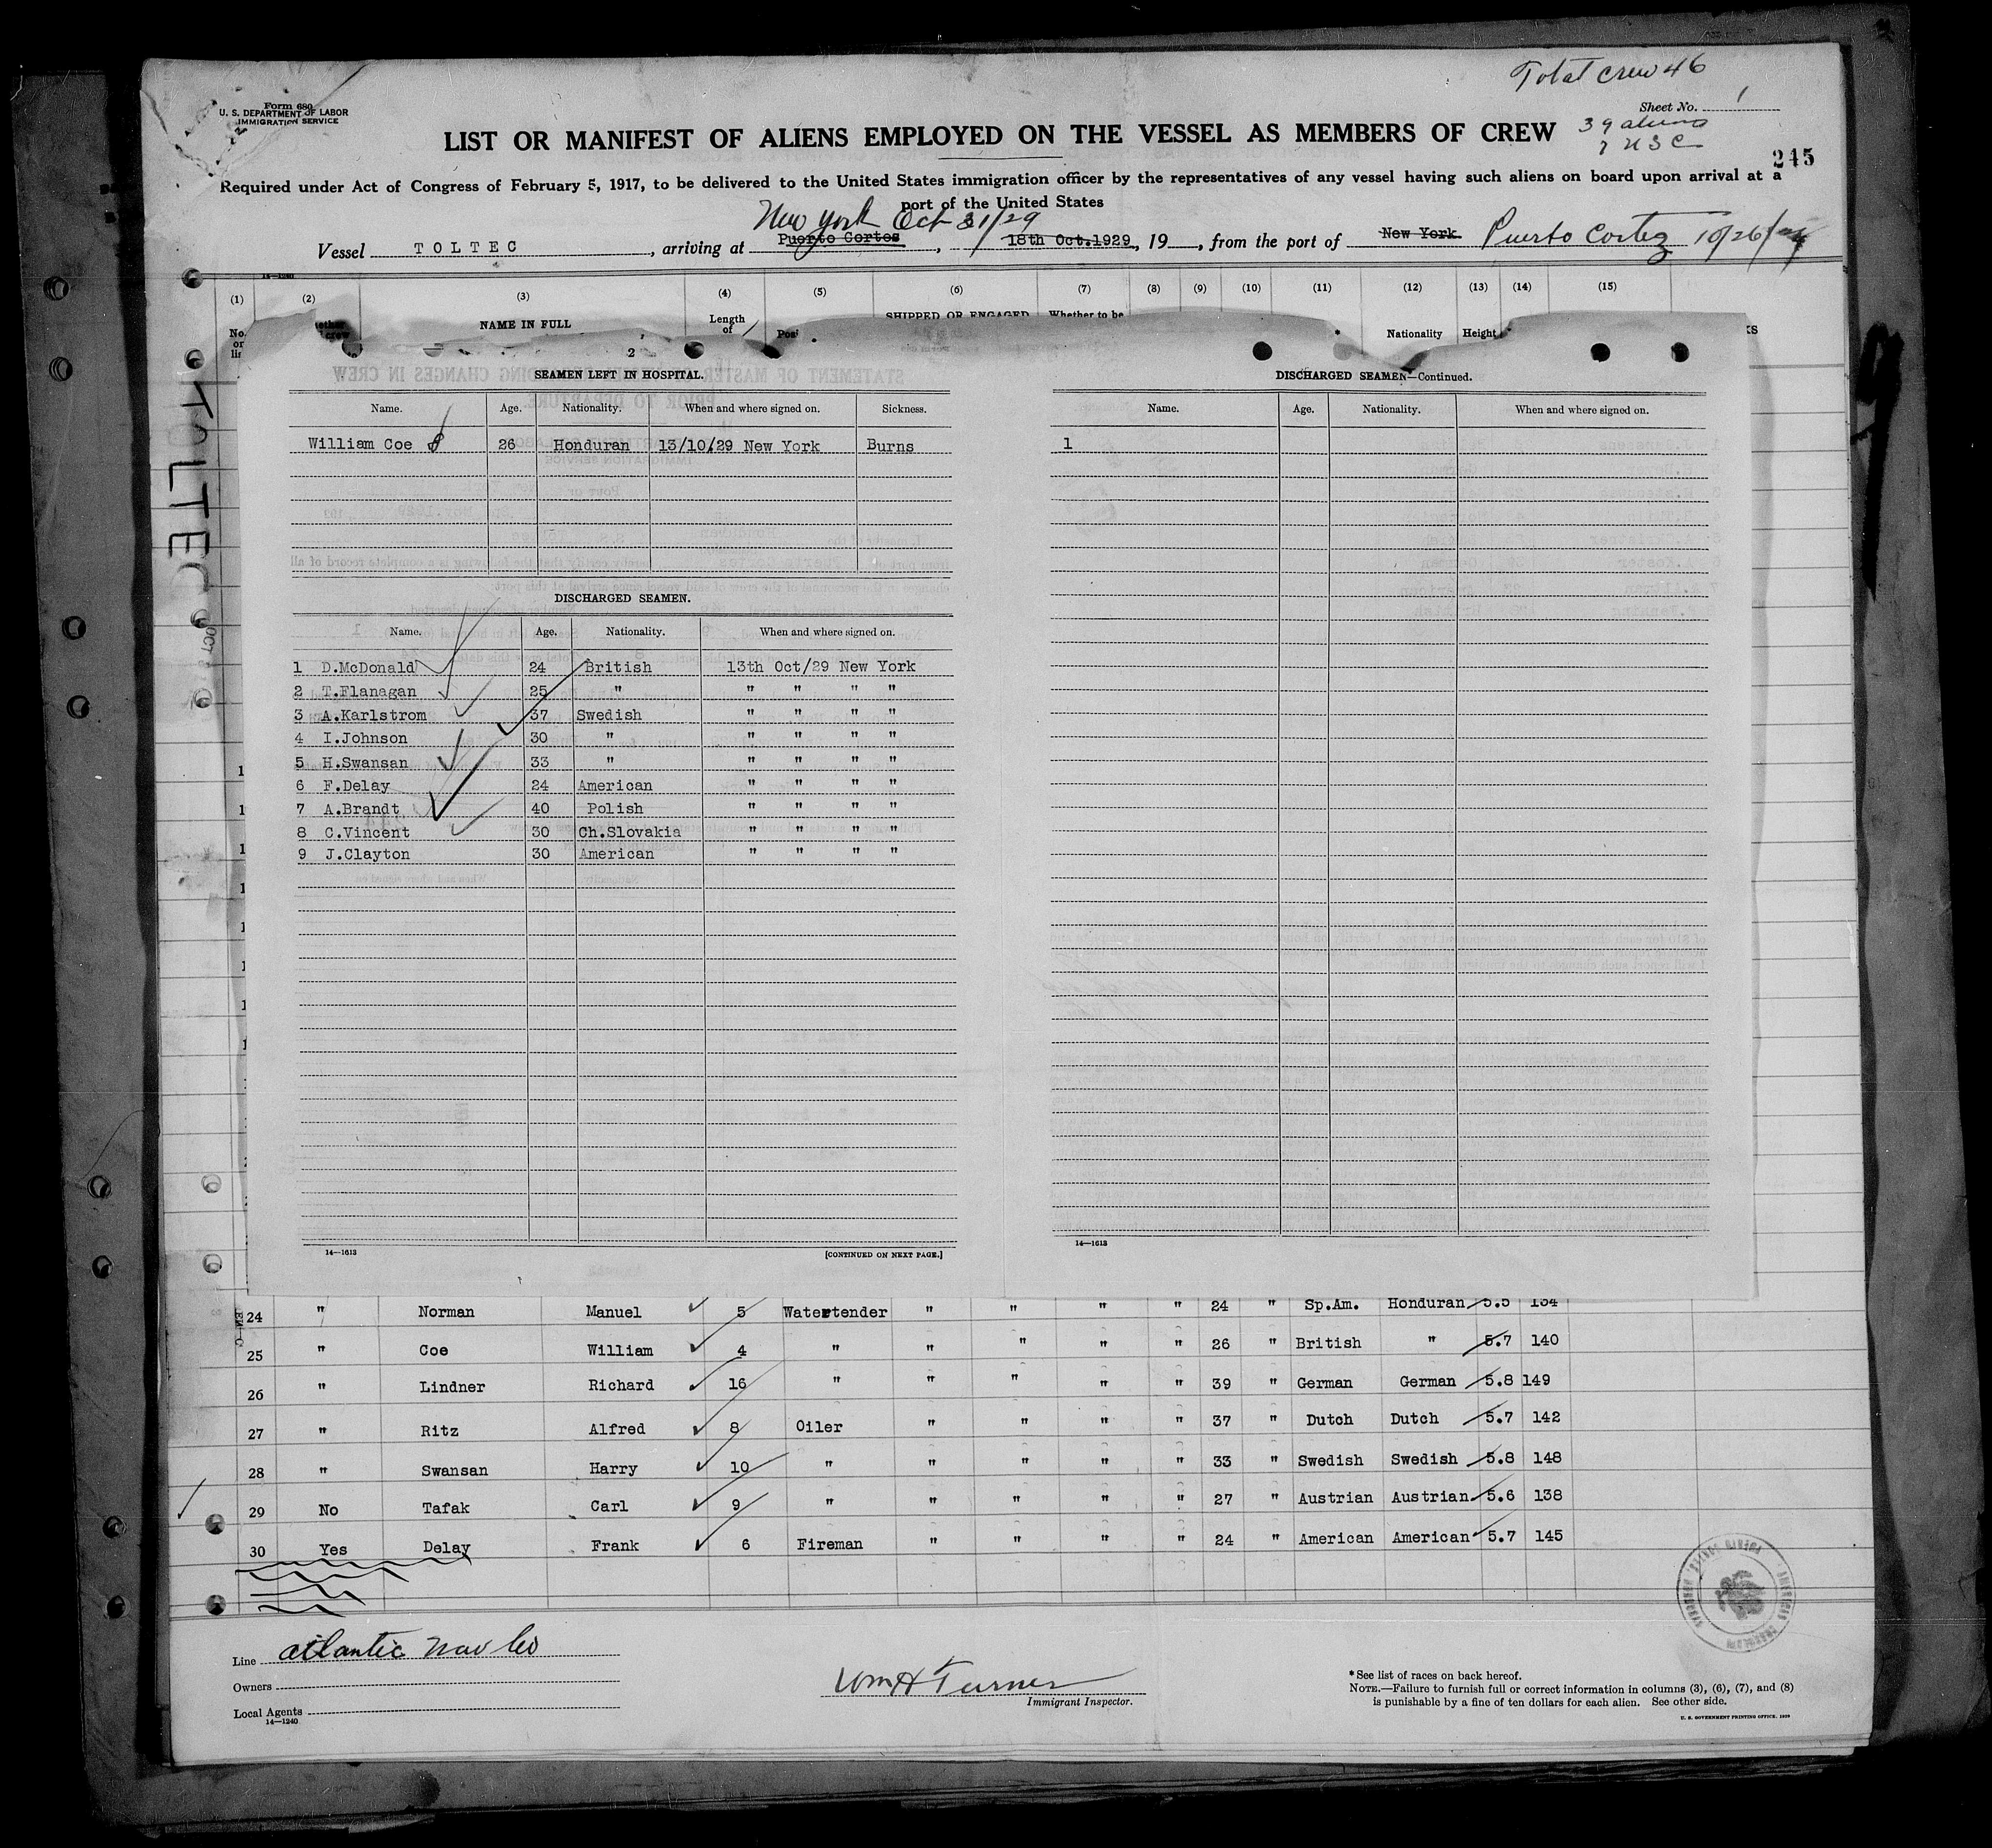 Total crew 46
Form 680
U. S. DEPARTMENT OF LABOR
IMMIGRATION SERVICE
Sheet No. 1
LIST OR MANIFEST OF ALIENS EMPLOYED ON THE VESSEL AS MEMBERS OF CREW
39 aliens
7 USC
245
Required under Act of Congress of February 5, 1917, to be delivered to the United States immigration officer by the representatives of any vessel having such aliens on board upon arrival at a
port of the United States
New York Oct 31/29
Vessel TOLTEC, arriving at Puerto Cortes, 18th Oct.1929, 19, from the port of New York Puerto Cortez 10/26/
(1) (2) (3) (4) (5) (6) (7) (8) (9) (10) (11) (12) (13) (14) (15)
NAME IN FULL Length of SHIPPED OR ENGAGED Whether to be Nationality Height
No. on
TOLTEC
2
SEAMEN LEFT IN HOSPITAL.
Name. Age. Nationality. When and where signed on. Sickness.
William Coe 26 Honduran 13/10/29 New York Burns
DISCHARGED SEAMEN.
Name. Age. Nationality. When and where signed on.
1 D.McDonald 24 British 13th Oct/29 New York
2 T.Flanagan 25 " " " " "
3 A.Karlstrom 37 Swedish " " " "
4 I.Johnson 30 " " " " "
5 H.Swansan 33 " " " " "
6 F.Delay 24 American " " " "
7 A.Brandt 40 Polish " " " "
8 C.Vincent 30 Ch.Slovakia " " " "
9 J.Clayton 30 American " " " "
14—1613 [CONTINUED ON NEXT PAGE.]
DISCHARGED SEAMEN—Continued.
Name. Age. Nationality. When and where signed on.
1
14—1613
24 " Norman Manuel 5 Watertender " " " " 24 " Sp.Am. Honduran 5.5 134
25 " Coe William 4 " " " " " 26 " British " 5.7 140
26 " Lindner Richard 16 " " " " " 39 " German German 5.8 149
27 " Ritz Alfred 8 Oiler " " " " 37 " Dutch Dutch 5.7 142
28 " Swansan Harry 10 " " " " " 33 " Swedish Swedish 5.8 148
29 No Tafak Carl 9 " " " " " 27 " Austrian Austrian 5.6 138
30 Yes Delay Frank 6 Fireman " " " " 24 " American American 5.7 145
Line Atlantic Nav Co
Owners
Local Agents
14—1240
Wm H Turner
Immigrant Inspector.
* See list of races on back hereof.
NOTE.—Failure to furnish full or correct information in columns (3), (6), (7), and (8)
is punishable by a fine of ten dollars for each alien. See other side.
U. S. GOVERNMENT PRINTING OFFICE. 1929